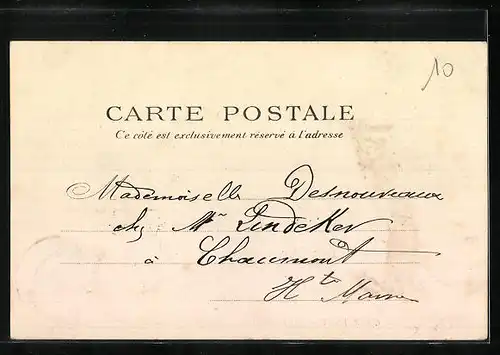 10
CARTE POSTALE
Ce côté est exclusivement réservé à l'adresse
Mademoiselle Desnouveaux
chez Mr Lindeker
à Chaumont
Hte Marne